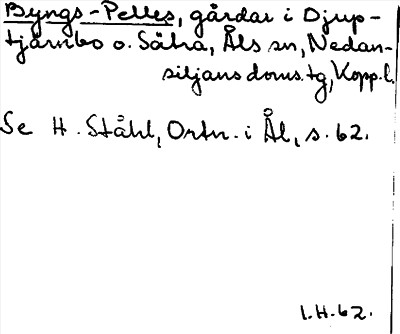 Byngs-Pelles, gårdar i Djup-
tjärnbo o. Sätra, Åls sn, Nedan-
siljans doms.tg, Kopp.l.
Se H. Ståhl, Ortn. i Ål, s. 62.
I.H.62.